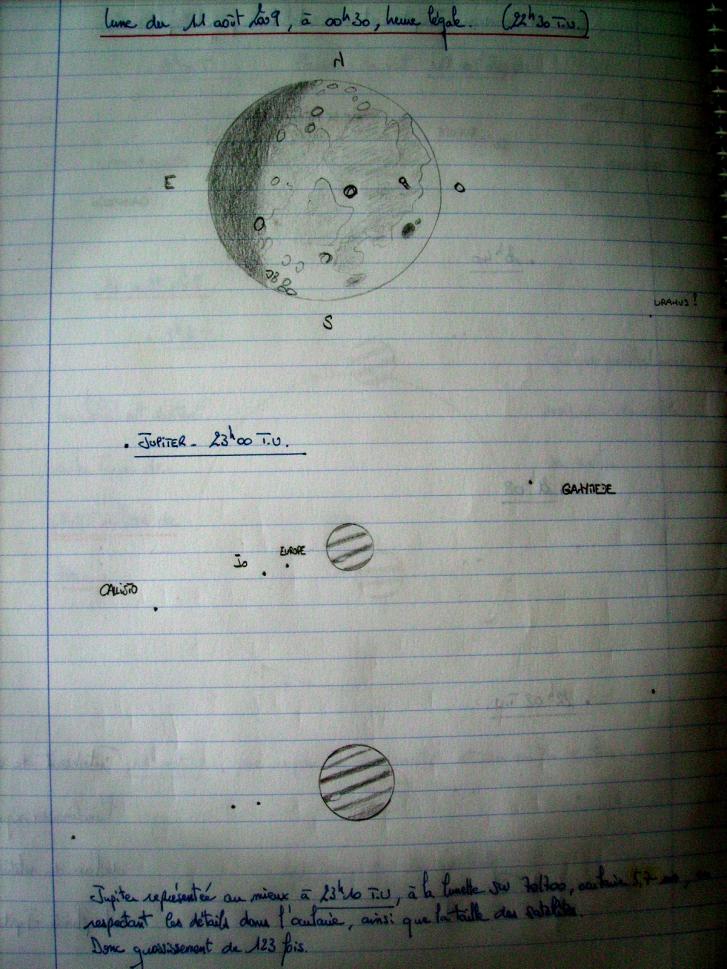 lune du 11 août 2009, à 00h30, heure légale. (22h30 T.U.)
N
E
O
S
URANUS?
. JUPITER - 23h00 T.U.
GANIMEDE
Io
EUROPE
CALLISTO
Jupiter représentée au mieux à 23h10 T.U, à la lunette SW 70/700, oculaire 5,7 mm, en
respectant les détails dans l'oculaire, ainsi que la taille des satellites.
Donc grossissement de 123 fois.